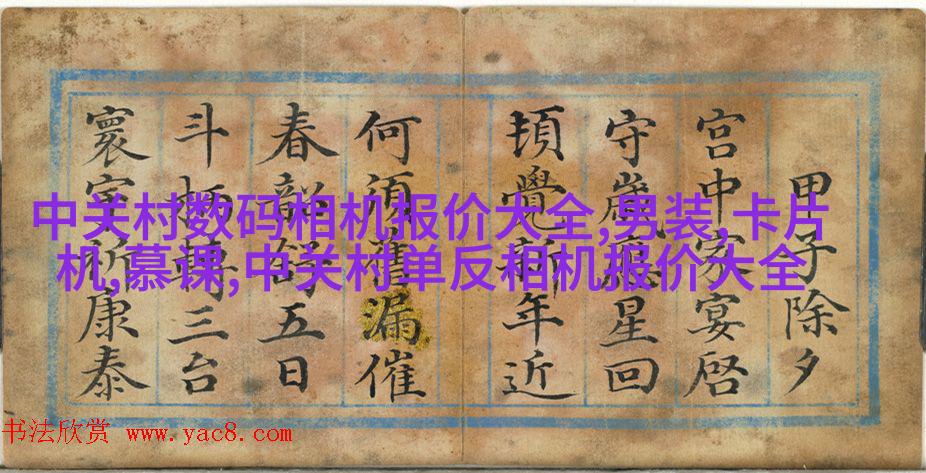 甲子除夕
宫中家宴啓
守歲星回
頓覺新年近
何須舊漏催
春韶五日
斗柄轉三台
寰宇祈康泰
中关村数码相机报价大全,男装,卡片
机,慕课,中关村单反相机报价大全
书法欣赏 www.yac8.com